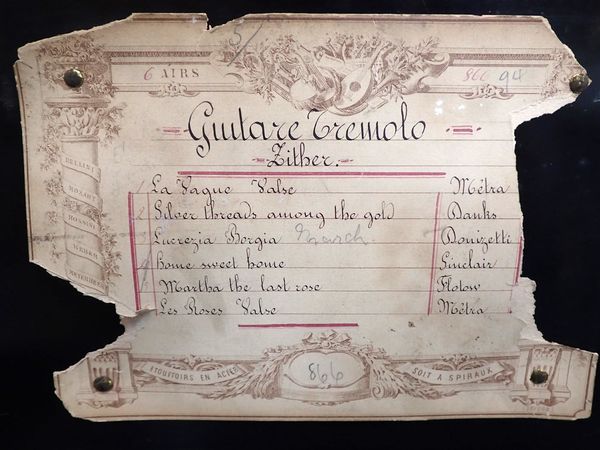 5/
6 AIRS 866 94
Guitare Tremolo
Zither.
1 La Vague Valse Métra
2 Silver threads among the gold Danks
3 Lucrezia Borgia French. Donizetti
4 Home sweet home Sinclair
5 Martha the last rose Flotow
Les Roses Valse Métra
BELLINI
MOZART
ROSSINI
WEBER
MEYERBEER
ETOUFFOIRS EN ACIER 866 SOIT A SPIRAUX